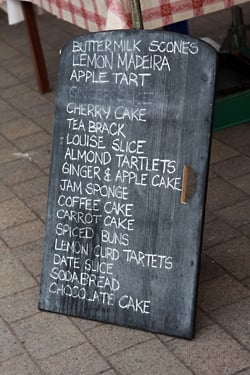 BUTTERMILK SCONES
LEMON MADEIRA
APPLE TART
CHERRY CAKE
TEA BRACK
LOUISE SLICE
ALMOND TARTLETS
GINGER & APPLE CAKE
JAM SPONGE
COFFEE CAKE
CARROT CAKE
SPICED BUNS
LEMON CURD TARTETS
DATE SLICE
SODA BREAD
CHOCOLATE CAKE